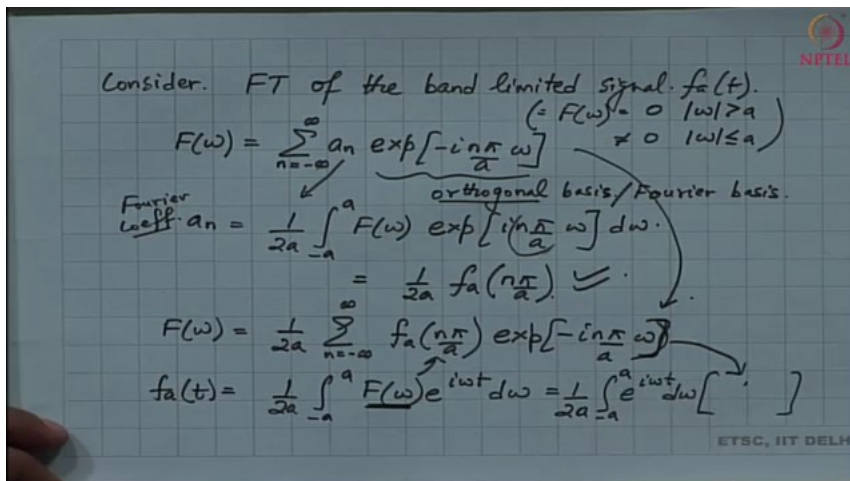 NPTEL
Consider. FT of the band limited signal. fa(t).
(= F(ω) = 0 |ω|>a
≠ 0 |ω|≤a)
F(ω) = ∑_{n=-∞}^{∞} an exp[-i nπ/a ω]
orthogonal basis/Fourier basis.
Fourier
coeff. an = 1/2a ∫_{-a}^{a} F(ω) exp[i nπ/a ω] dω.
= 1/2a fa(nπ/a).
F(ω) = 1/2a ∑_{n=-∞}^{∞} fa(nπ/a) exp[-i nπ/a ω]
fa(t) = 1/2a ∫_{-a}^{a} F(ω) e^{iωt} dω = 1/2a ∫_{-a}^{a} e^{iωt} dω [ ]
ETSC, IIT DELH